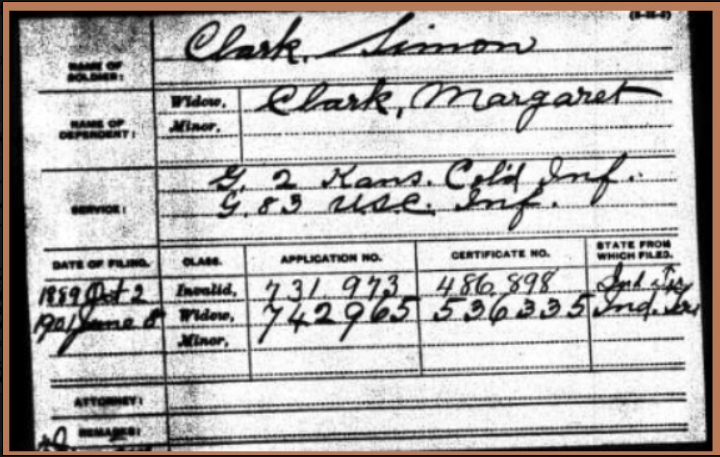 (3-11-2)
NAME OF SOLDIER: Clark, Simon
NAME OF DEPENDENT: Widow, Clark, Margaret
Minor,
SERVICE: G. 2 Kans. Col'd Inf.
G. 83 U.S.C. Inf.
DATE OF FILING. CLASS. APPLICATION NO. CERTIFICATE NO. STATE FROM WHICH FILED.
1889 Oct 2 Invalid, 731.973 486.898 Ind. Ty
1901 June 8 Widow, 742965 536335 Ind. Ter
Minor,
ATTORNEY:
REMARKS: